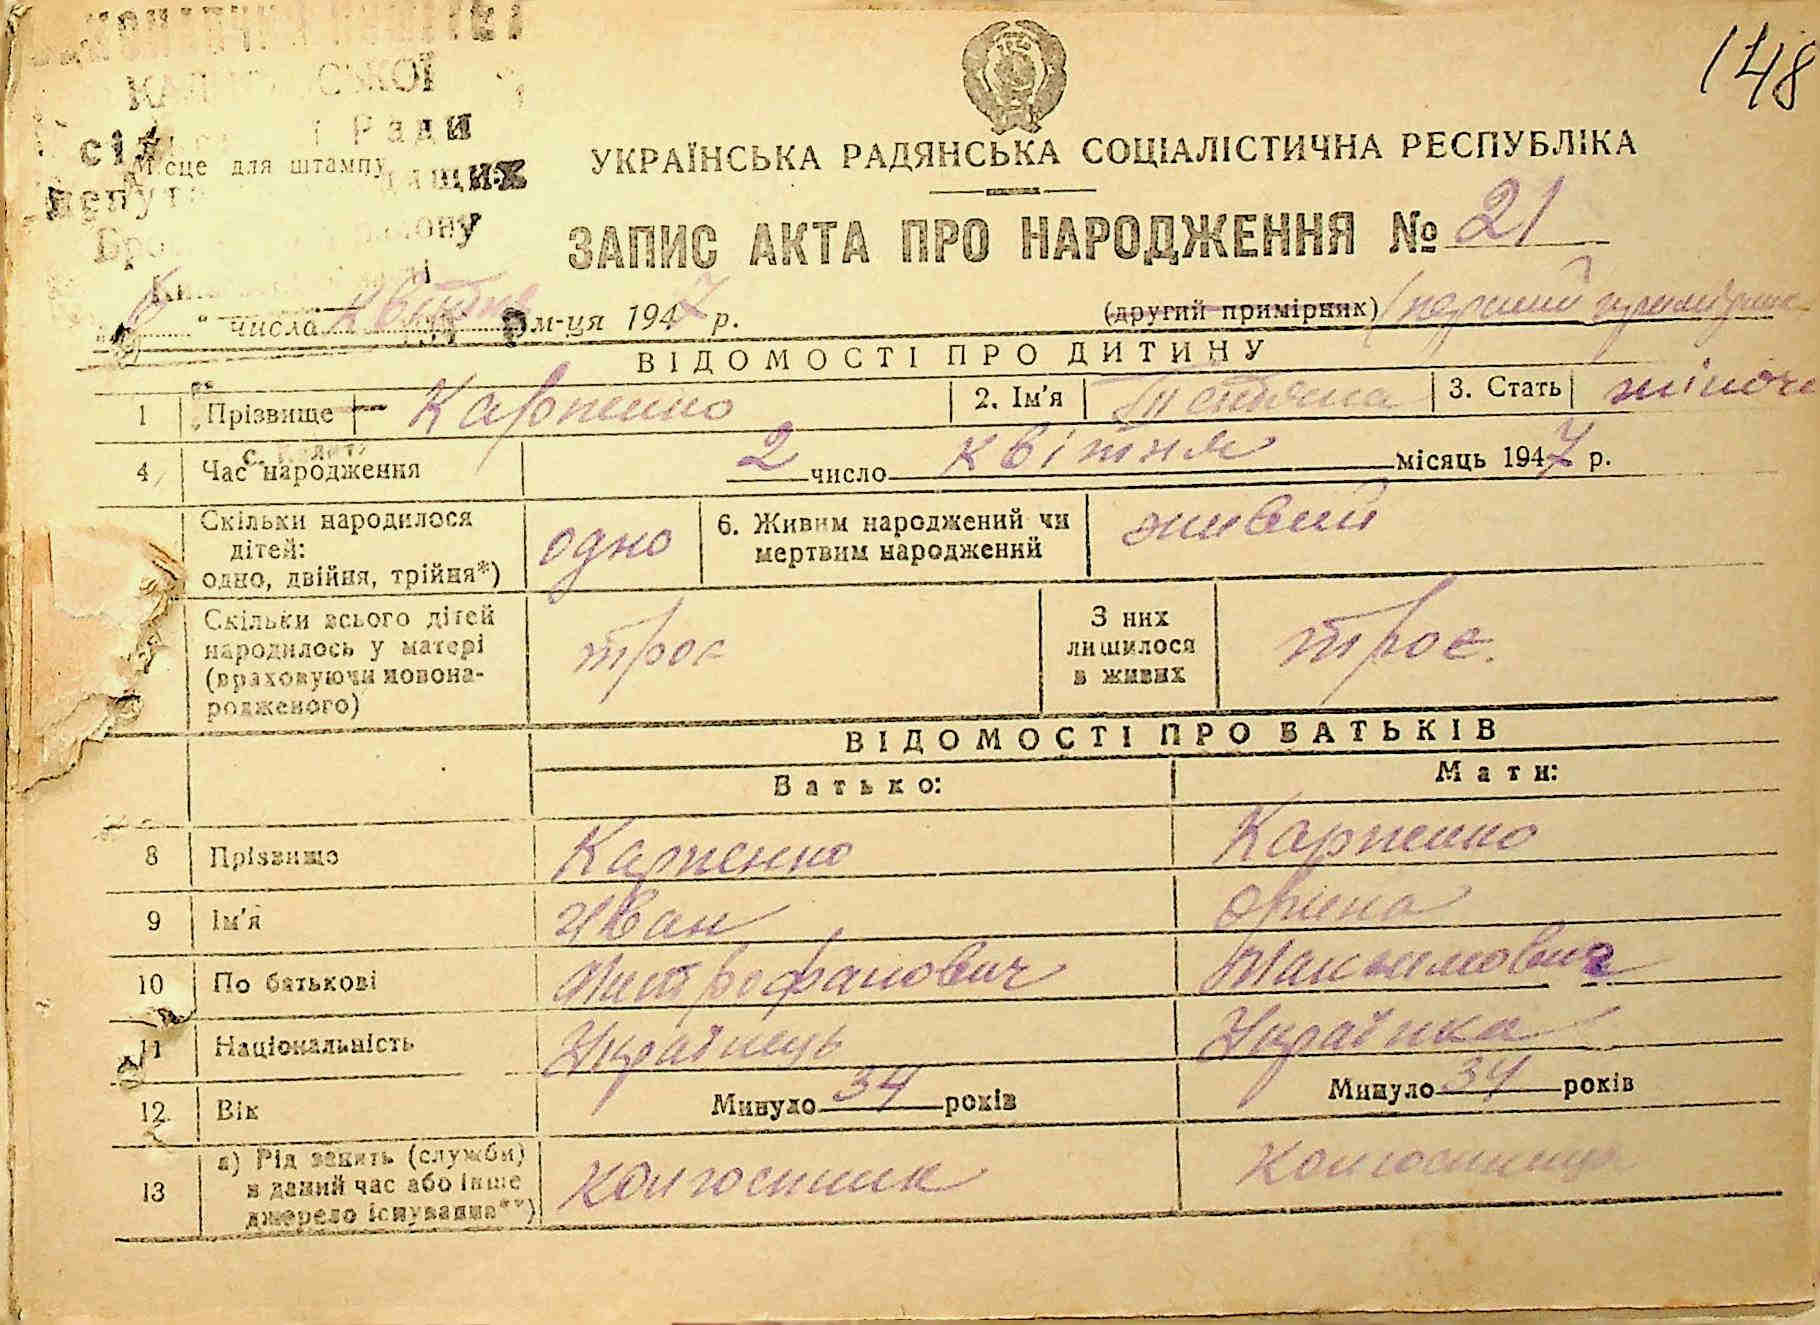 148
Ради
Місце для штампу
УКРАЇНСЬКА РАДЯНСЬКА СОЦІАЛІСТИЧНА РЕСПУБЛІКА
ЗАПИС АКТА ПРО НАРОДЖЕННЯ № 21
" числа квітня м-ця 1947 р.
(другий примірник) (перший примірник
ВІДОМОСТІ ПРО ДИТИНУ
1 Прізвище Карпенко 2. Ім'я Тетяна 3. Стать жіноч
4 Час народження 2 число квітня місяць 1947 р.
Скільки народилося
дітей:
одно, двійня, трійня*)
одно
6. Живим народжений чи
мертвим народжений
живий
Скільки всього дітей
народилось у матері
(враховуючи новона-
родженого)
троє
З них
лишилося
в живих
троє.
ВІДОМОСТІ ПРО БАТЬКІВ
Батько: Мати:
8 Прізвище Карпенко Карпенко
9 Ім'я Иван Орина
10 По батькові Митрофанович Максимовна
11 Національність Українець Українка
12 Вік Минуло 34 років Минуло 34 років
13 а) Рід занять (служби)
в даний час або інше
джерело існування**)
колгоспник колгоспниця